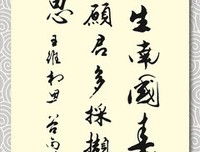 生南國春
願君多採擷
思 王維相思